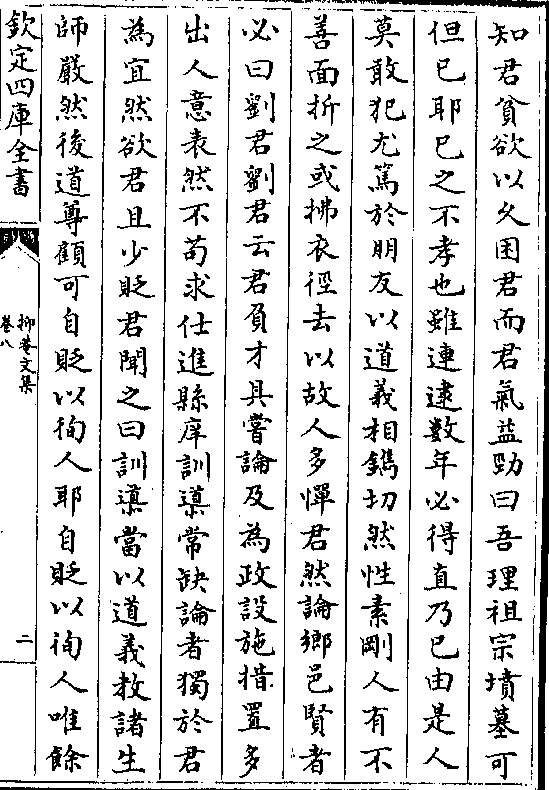 知君貧欲以久困君而君氣益勁曰吾理祖宗墳墓可
但已耶已之不孝也雖連逮數年必得直乃已由是人
莫敢犯尤篤於朋友以道義相鐫切然性素剛人有不
善面折之或拂衣徑去以故人多憚君然論鄉邑賢者
必曰劉君劉君云君負才具嘗論及為政設施措置多
出人意表然不茍求仕進縣庠訓導常缺論者獨於君
為宜然欲君且少貶君聞之曰訓導當以道義教諸生
師嚴然後道尊顧可自貶以徇人耶自貶以徇人唯餘
欽定四庫全書
抑菴文集
卷八
二